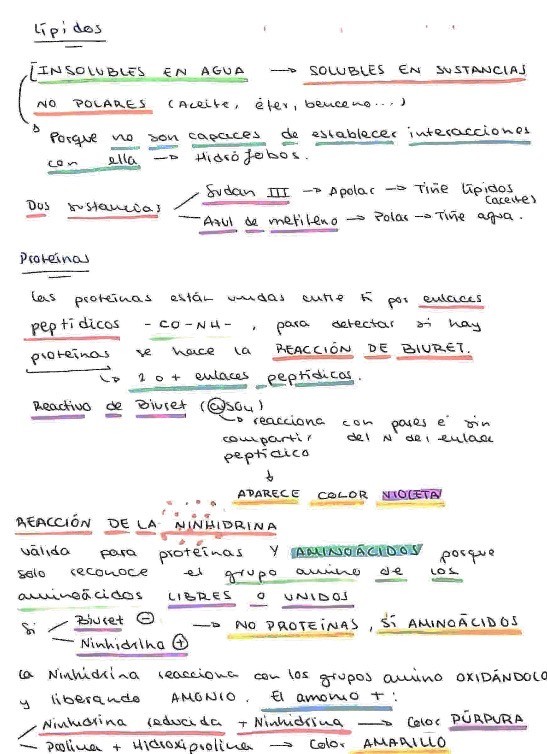 Lípidos
INSOLUBLES EN AGUA → SOLUBLES EN SUSTANCIAS
NO POLARES (Aceite, éter, benceno...)
Porque no son capaces de establecer interacciones
con ella → Hidrófobos.
Dos sustancias
Sudan III → Apolar → Tiñe lípidos (aceites)
Azul de metileno → Polar → Tiñe agua.
Proteínas
Las proteínas están unidas entre sí por enlaces
peptídicos -CO-NH-, para detectar si hay
proteínas se hace la REACCIÓN DE BIURET.
2 o + enlaces peptídicos.
Reactivo de Biuret (CuSO4)
reacciona con pares e⁻ sin
compartir del N del enlace
peptídico
↓
APARECE COLOR VIOLETA
REACCIÓN DE LA NINHIDRINA
válida para proteínas Y AMINOÁCIDOS porque
solo reconoce el grupo amino de los
aminoácidos LIBRES O UNIDOS
Si
Biuret ⊖
Ninhidrina ⊕
→ NO PROTEÍNAS, SÍ AMINOÁCIDOS
La Ninhidrina reacciona con los grupos amino OXIDÁNDOLO
y liberando AMONIO. El amonio +:
Ninhidrina reducida + Ninhidrina → Color PÚRPURA
Prolina + Hidroxiprolina → Color AMARILLO